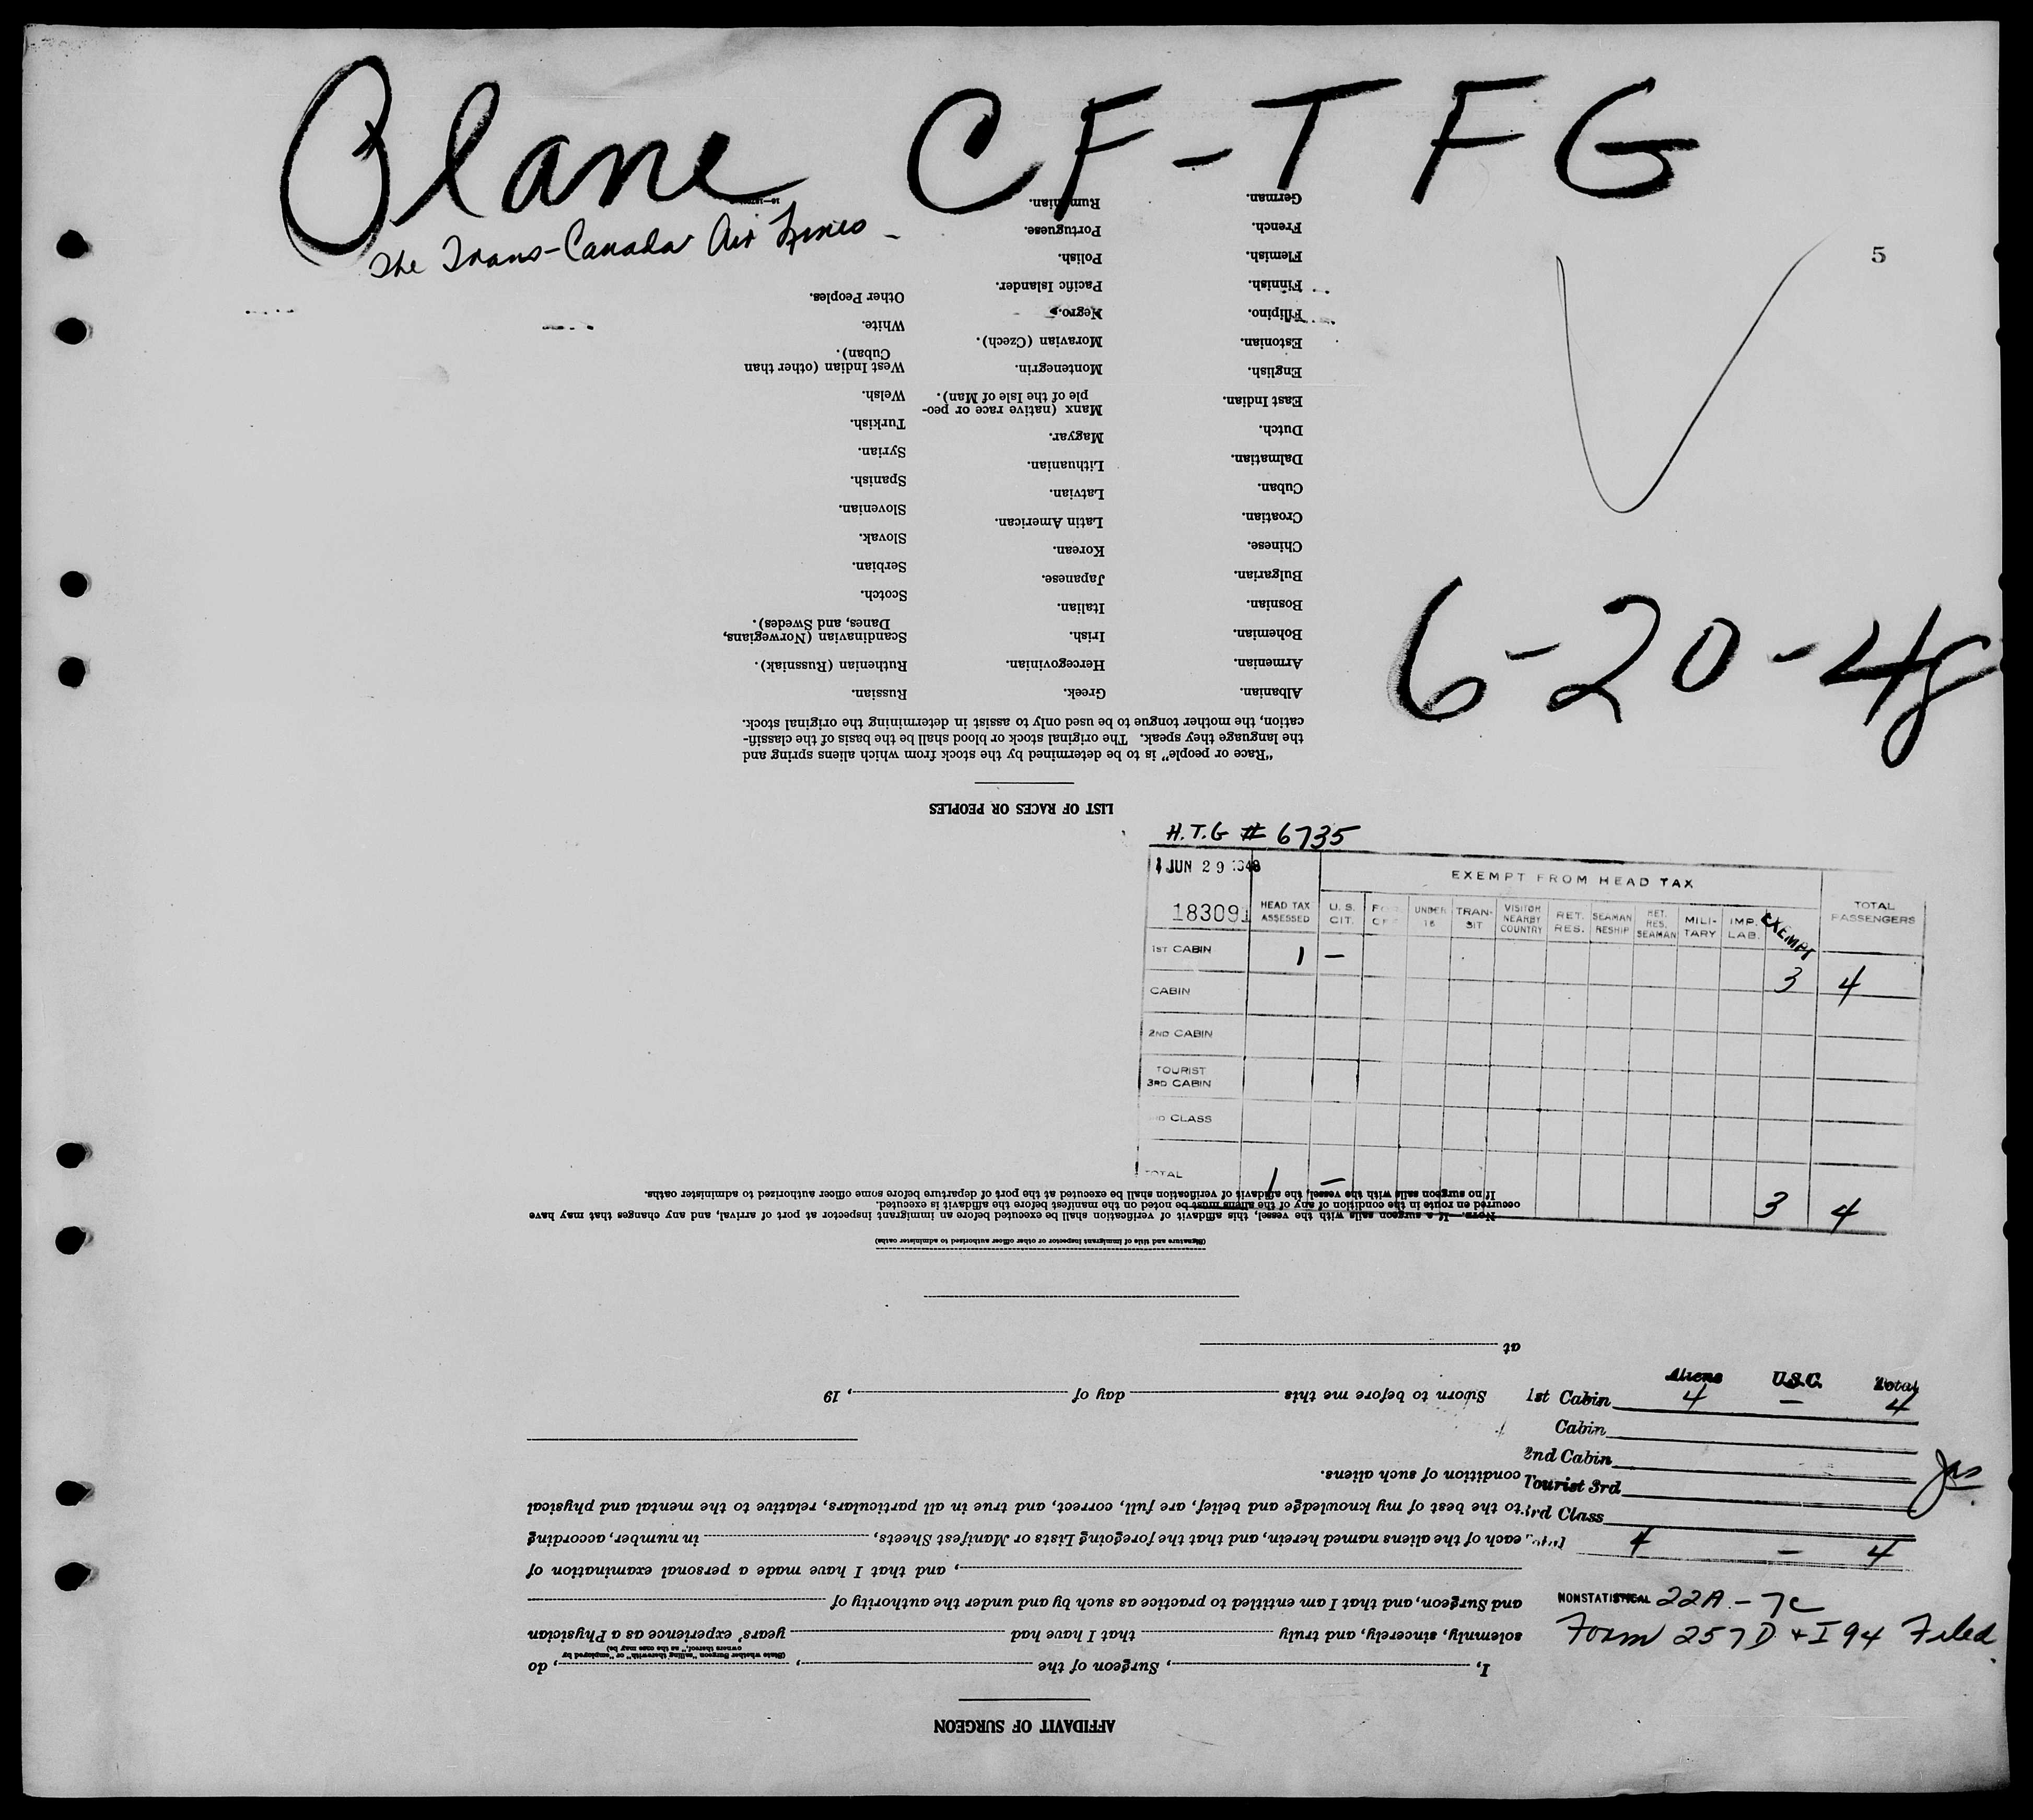 Plane CF-TFG
The Trans-Canada Air Lines -
5
6-20-48
H.T.G # 6735
JUN 29 1948
183091
EXEMPT FROM HEAD TAX
HEAD TAX ASSESSED
U. S. CIT.
UNDER 16
TRAN-SIT
VISITOR NEARBY COUNTRY
RET. RES.
SEAMAN RESHIP
RET. RES. SEAMAN
MILI-TARY
IMP. LAB.
EXEMPT
TOTAL PASSENGERS
1ST CABIN 1 — 3 4
CABIN
2ND CABIN
TOURIST
3RD CABIN
CLASS
TOTAL 1 — 3 4
Aliens U.S.C. Total
1st Cabin 4 — 4
Cabin
2nd Cabin
Tourist 3rd
3rd Class
Total 4 — 4
NONSTATISTICAL 22A - 7c
Form 257D + I 94 Filed
AFFIDAVIT OF SURGEON
I, , Surgeon of the , , do
(State whether Surgeon "sailing therewith" or "employed by owners thereof," as the case may be)
solemnly, sincerely, and truly that I have had years' experience as a Physician
and Surgeon, and that I am entitled to practice as such by and under the authority of
, and that I have made a personal examination of
each of the aliens named herein, and that the foregoing Lists or Manifest Sheets, in number, according
to the best of my knowledge and belief, are full, correct, and true in all particulars, relative to the mental and physical
condition of such aliens.
Sworn to before me this day of , 19
at
(Signature and title of immigrant inspector or other officer authorized to administer oaths)
NOTE.—If a surgeon sails with the vessel, this affidavit of verification shall be executed before an immigrant inspector at port of arrival, and any changes that may have
occurred en route in the condition of any of the aliens must be noted on the manifest before the affidavit is executed.
If no surgeon sails with the vessel, the affidavit of verification shall be executed at the port of departure before some officer authorized to administer oaths.
LIST OF RACES OR PEOPLES
"Race or people" is to be determined by the stock from which aliens spring and
the language they speak. The original stock or blood shall be the basis of the classifi-
cation, the mother tongue to be used only to assist in determining the original stock.
Albanian.
Armenian.
Bohemian.
Bosnian.
Bulgarian.
Chinese.
Croatian.
Cuban.
Dalmatian.
Dutch.
East Indian.
English.
Estonian.
Filipino.
Finnish.
Flemish.
French.
German.
Greek.
Hercegovinian.
Irish.
Italian.
Japanese.
Korean.
Latin American.
Latvian.
Lithuanian.
Magyar.
Manx (native race or peo-
ple of the Isle of Man).
Montenegrin.
Moravian (Czech).
Negro.
Pacific Islander.
Polish.
Portuguese.
Rumanian.
Russian.
Ruthenian (Russniak).
Scandinavian (Norwegians,
Danes, and Swedes).
Scotch.
Serbian.
Slovak.
Slovenian.
Spanish.
Syrian.
Turkish.
Welsh.
West Indian (other than
Cuban).
White.
Other Peoples.